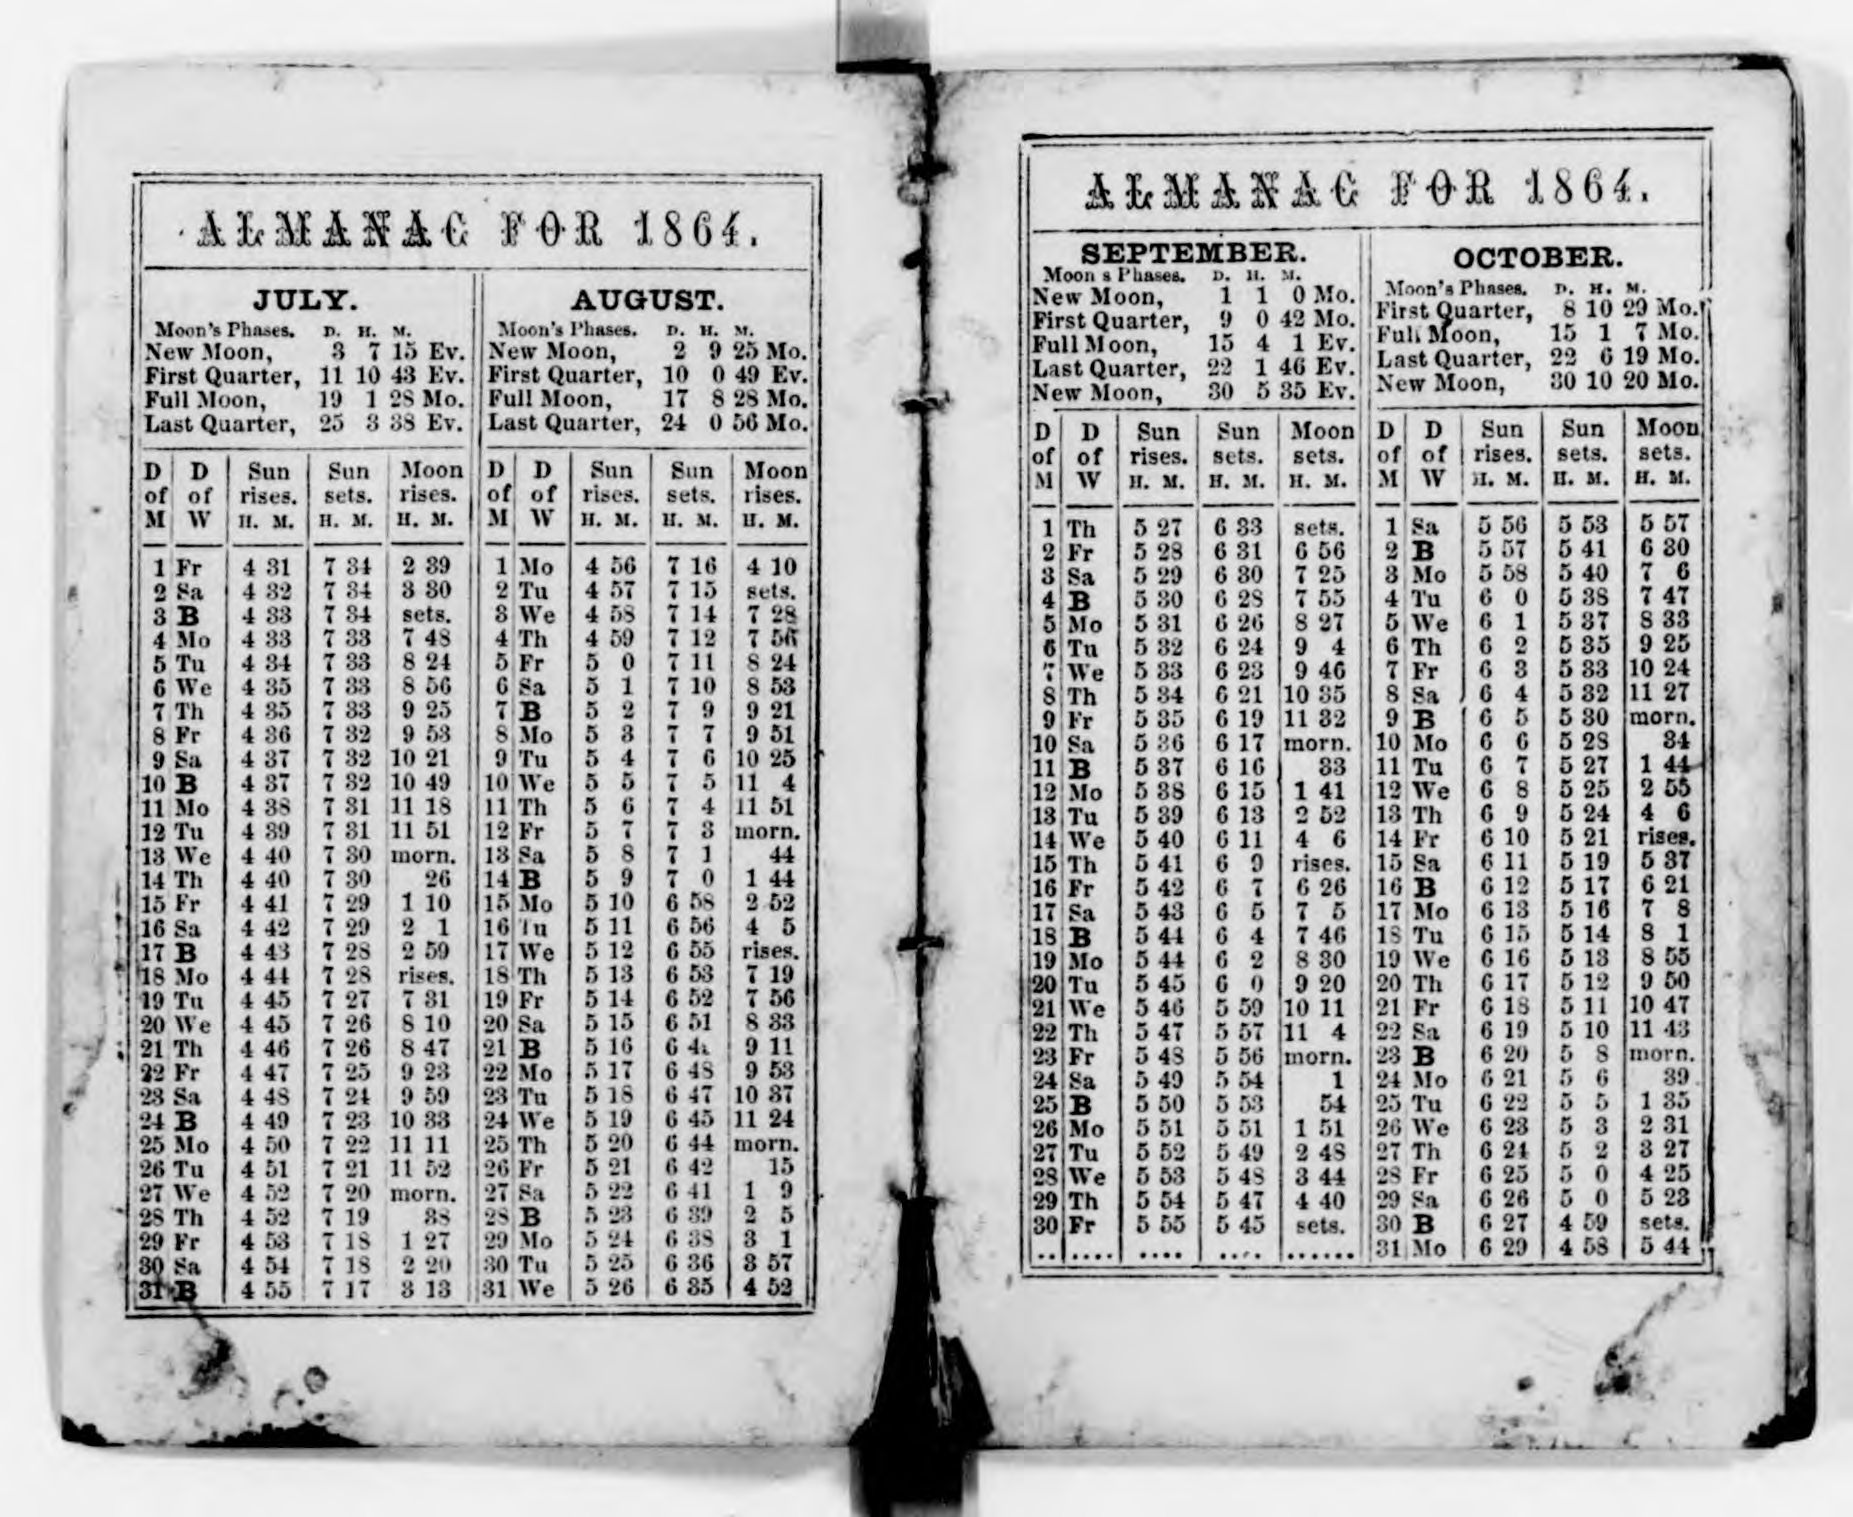 ALMANAC FOR 1864.
JULY.
Moon's Phases. D. H. M.
New Moon, 3 7 15 Ev.
First Quarter, 11 10 43 Ev.
Full Moon, 19 1 28 Mo.
Last Quarter, 25 3 38 Ev.
D of M D of W Sun rises. H. M. Sun sets. H. M. Moon rises. H. M.
1 Fr 4 31 7 34 2 39
2 Sa 4 32 7 34 3 30
3 B 4 33 7 34 sets.
4 Mo 4 33 7 33 7 48
5 Tu 4 34 7 33 8 24
6 We 4 35 7 33 8 56
7 Th 4 35 7 33 9 25
8 Fr 4 36 7 32 9 53
9 Sa 4 37 7 32 10 21
10 B 4 37 7 32 10 49
11 Mo 4 38 7 31 11 18
12 Tu 4 39 7 31 11 51
13 We 4 40 7 30 morn.
14 Th 4 40 7 30 26
15 Fr 4 41 7 29 1 10
16 Sa 4 42 7 29 2 1
17 B 4 43 7 28 2 59
18 Mo 4 44 7 28 rises.
19 Tu 4 45 7 27 7 31
20 We 4 45 7 26 8 10
21 Th 4 46 7 26 8 47
22 Fr 4 47 7 25 9 23
23 Sa 4 48 7 24 9 59
24 B 4 49 7 23 10 33
25 Mo 4 50 7 22 11 11
26 Tu 4 51 7 21 11 52
27 We 4 52 7 20 morn.
28 Th 4 52 7 19 38
29 Fr 4 53 7 18 1 27
30 Sa 4 54 7 18 2 20
31 B 4 55 7 17 3 13
AUGUST.
Moon's Phases. D. H. M.
New Moon, 2 9 25 Mo.
First Quarter, 10 0 49 Ev.
Full Moon, 17 8 28 Mo.
Last Quarter, 24 0 56 Mo.
D of M D of W Sun rises. H. M. Sun sets. H. M. Moon rises. H. M.
1 Mo 4 56 7 16 4 10
2 Tu 4 57 7 15 sets.
3 We 4 58 7 14 7 28
4 Th 4 59 7 12 7 56
5 Fr 5 0 7 11 8 24
6 Sa 5 1 7 10 8 53
7 B 5 2 7 9 9 21
8 Mo 5 3 7 7 9 51
9 Tu 5 4 7 6 10 25
10 We 5 5 7 5 11 4
11 Th 5 6 7 4 11 51
12 Fr 5 7 7 3 morn.
13 Sa 5 8 7 1 44
14 B 5 9 7 0 1 44
15 Mo 5 10 6 58 2 52
16 Tu 5 11 6 56 4 5
17 We 5 12 6 55 rises.
18 Th 5 13 6 53 7 19
19 Fr 5 14 6 52 7 56
20 Sa 5 15 6 51 8 33
21 B 5 16 6 9 11
22 Mo 5 17 6 48 9 53
23 Tu 5 18 6 47 10 37
24 We 5 19 6 45 11 24
25 Th 5 20 6 44 morn.
26 Fr 5 21 6 42 15
27 Sa 5 22 6 41 1 9
28 B 5 23 6 39 2 5
29 Mo 5 24 6 38 3 1
30 Tu 5 25 6 36 3 57
31 We 5 26 6 35 4 52
ALMANAC FOR 1864.
SEPTEMBER.
Moon s Phases. D. H. M.
New Moon, 1 1 0 Mo.
First Quarter, 9 0 42 Mo.
Full Moon, 15 4 1 Ev.
Last Quarter, 22 1 46 Ev.
New Moon, 30 5 35 Ev.
D of M D of W Sun rises. H. M. Sun sets. H. M. Moon sets. H. M.
1 Th 5 27 6 33 sets.
2 Fr 5 28 6 31 6 56
3 Sa 5 29 6 30 7 25
4 B 5 30 6 28 7 55
5 Mo 5 31 6 26 8 27
6 Tu 5 32 6 24 9 4
7 We 5 33 6 23 9 46
8 Th 5 34 6 21 10 35
9 Fr 5 35 6 19 11 32
10 Sa 5 36 6 17 morn.
11 B 5 37 6 16 33
12 Mo 5 38 6 15 1 41
13 Tu 5 39 6 13 2 52
14 We 5 40 6 11 4 6
15 Th 5 41 6 9 rises.
16 Fr 5 42 6 7 6 26
17 Sa 5 43 6 5 7 5
18 B 5 44 6 4 7 46
19 Mo 5 44 6 2 8 30
20 Tu 5 45 6 0 9 20
21 We 5 46 5 59 10 11
22 Th 5 47 5 57 11 4
23 Fr 5 48 5 56 morn.
24 Sa 5 49 5 54 1
25 B 5 50 5 53 54
26 Mo 5 51 5 51 1 51
27 Tu 5 52 5 49 2 48
28 We 5 53 5 48 3 44
29 Th 5 54 5 47 4 40
30 Fr 5 55 5 45 sets.
.. .... .... .... ......
OCTOBER.
Moon's Phases. D. H. M.
First Quarter, 8 10 29 Mo.
Full Moon, 15 1 7 Mo.
Last Quarter, 22 6 19 Mo.
New Moon, 30 10 20 Mo.
D of M D of W Sun rises. H. M. Sun sets. H. M. Moon sets. H. M.
1 Sa 5 56 5 53 5 57
2 B 5 57 5 41 6 30
3 Mo 5 58 5 40 7 6
4 Tu 6 0 5 38 7 47
5 We 6 1 5 37 8 33
6 Th 6 2 5 35 9 25
7 Fr 6 3 5 33 10 24
8 Sa 6 4 5 32 11 27
9 B 6 5 5 30 morn.
10 Mo 6 6 5 28 34
11 Tu 6 7 5 27 1 44
12 We 6 8 5 25 2 55
13 Th 6 9 5 24 4 6
14 Fr 6 10 5 21 rises.
15 Sa 6 11 5 19 5 37
16 B 6 12 5 17 6 21
17 Mo 6 13 5 16 7 8
18 Tu 6 15 5 14 8 1
19 We 6 16 5 13 8 55
20 Th 6 17 5 12 9 50
21 Fr 6 18 5 11 10 47
22 Sa 6 19 5 10 11 43
23 B 6 20 5 8 morn.
24 Mo 6 21 5 6 39
25 Tu 6 22 5 5 1 35
26 We 6 23 5 3 2 31
27 Th 6 24 5 2 3 27
28 Fr 6 25 5 0 4 25
29 Sa 6 26 5 0 5 23
30 B 6 27 4 59 sets.
31 Mo 6 29 4 58 5 44